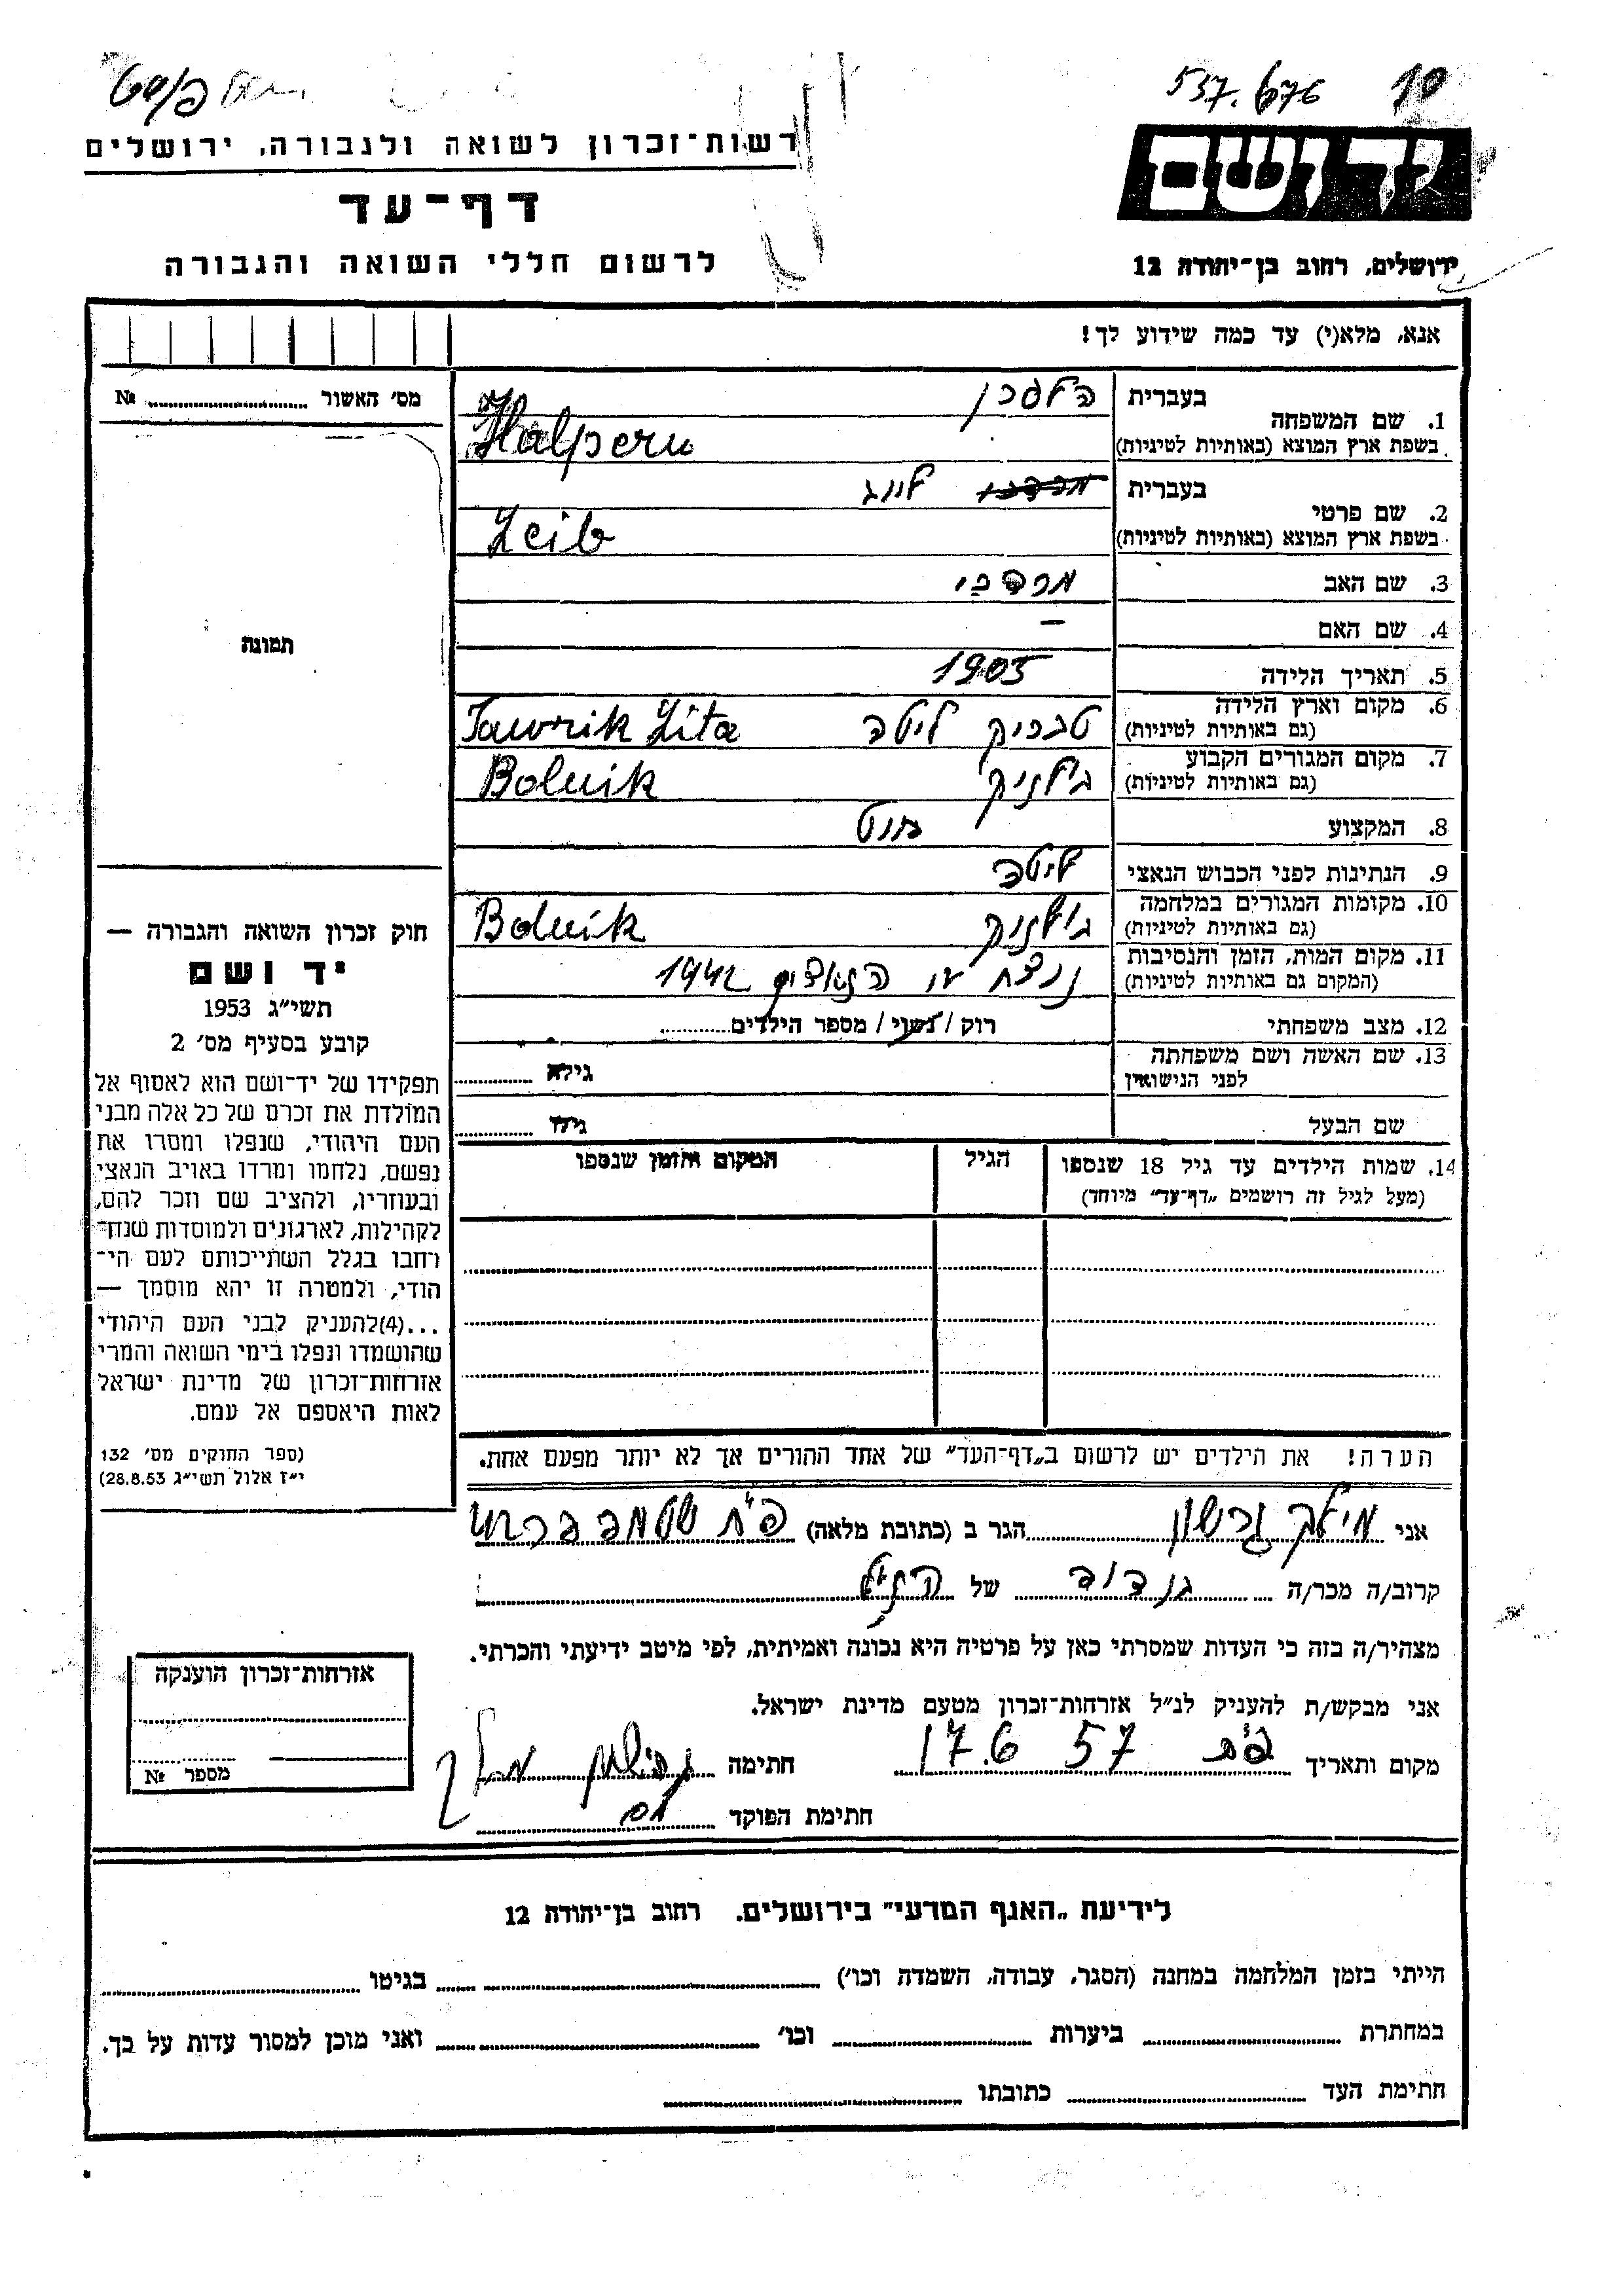 537.676 10
רשות-זכרון לשואה ולגבורה, ירושלים
יד ושם
דף-עד
לרשום חללי השואה והגבורה
ירושלים, רחוב בן-יהודה 12
אנא, מלא(י) עד כמה שידוע לך!
מס׳ האשור № 
1. שם המשפחה
בעברית הלפרן
בשפת ארץ המוצא (באותיות לטיניות) Halpern
2. שם פרטי
בעברית מרדכי לייב
בשפת ארץ המוצא (באותיות לטיניות) Leib
3. שם האב מרדכי
4. שם האם –
5. תאריך הלידה 1905
6. מקום וארץ הלידה
(גם באותיות לטיניות) טבריק ליטה Tawrik Lita
7. מקום המגורים הקבוע
(גם באותיות לטיניות) בולניק Bolnik
8. המקצוע
9. הנתינות לפני הכבוש הנאצי ליטה
10. מקומות המגורים במלחמה
(גם באותיות לטיניות) בולניק Bolnik
11. מקום המות, הזמן והנסיבות
(המקום גם באותיות לטיניות) נרצח ע״י הנאצים 1942
12. מצב משפחתי רוק / נשוי / מספר הילדים
13. שם האשה ושם משפחתה
לפני הנישואין גילה
שם הבעל גילו
14. שמות הילדים עד גיל 18 שנספו
(מעל לגיל זה רושמים „דף-עד״ מיוחד)
הגיל
המקום והזמן שנספו
תמונה
חוק זכרון השואה והגבורה —
יד ושם
תשי״ג 1953
קובע בסעיף מס׳ 2
תפקידו של יד-ושם הוא לאסוף אל
המולדת את זכרם של כל אלה מבני
העם היהודי, שנפלו ומסרו את
נפשם, נלחמו ומרדו באויב הנאצי
ובעוזריו, ולהציב שם וזכר להם,
לקהילות, לארגונים ולמוסדות שנח-
רחבו בגלל השתייכותם לעם הי-
הודי, ולמטרה זו יהא מוסמך —
...(4)להעניק לבני העם היהודי
שהושמדו ונפלו בימי השואה והמרי
אזרחות-זכרון של מדינת ישראל
לאות היאספם אל עמם.
(ספר החוקים מס׳ 132
י״ז אלול תשי״ג 28.8.53)
הערה! את הילדים יש לרשום ב„דף-העד״ של אחד ההורים אך לא יותר מפעם אחת.
אני מילך גרשון הגר ב (כתובת מלאה) פ״ת
קרוב/ה מכר/ה בן דוד של הנ״ל
מצהיר/ה בזה כי העדות שמסרתי כאן על פרטיה היא נכונה ואמיתית, לפי מיטב ידיעתי והכרתי.
אני מבקש/ת להעניק לנ״ל אזרחות-זכרון מטעם מדינת ישראל.
מקום ותאריך פ״ת 17.6 57 חתימה
חתימת הפוקד
אזרחות-זכרון הוענקה
מספר №
לידיעת „האגף המדעי״ בירושלים. רחוב בן-יהודה 12
הייתי בזמן המלחמה במחנה (הסגר, עבודה, השמדה וכו׳) בגיטו
במחתרת ביערות וכו׳ ואני מוכן למסור עדות על כך.
חתימת העד כתובתו